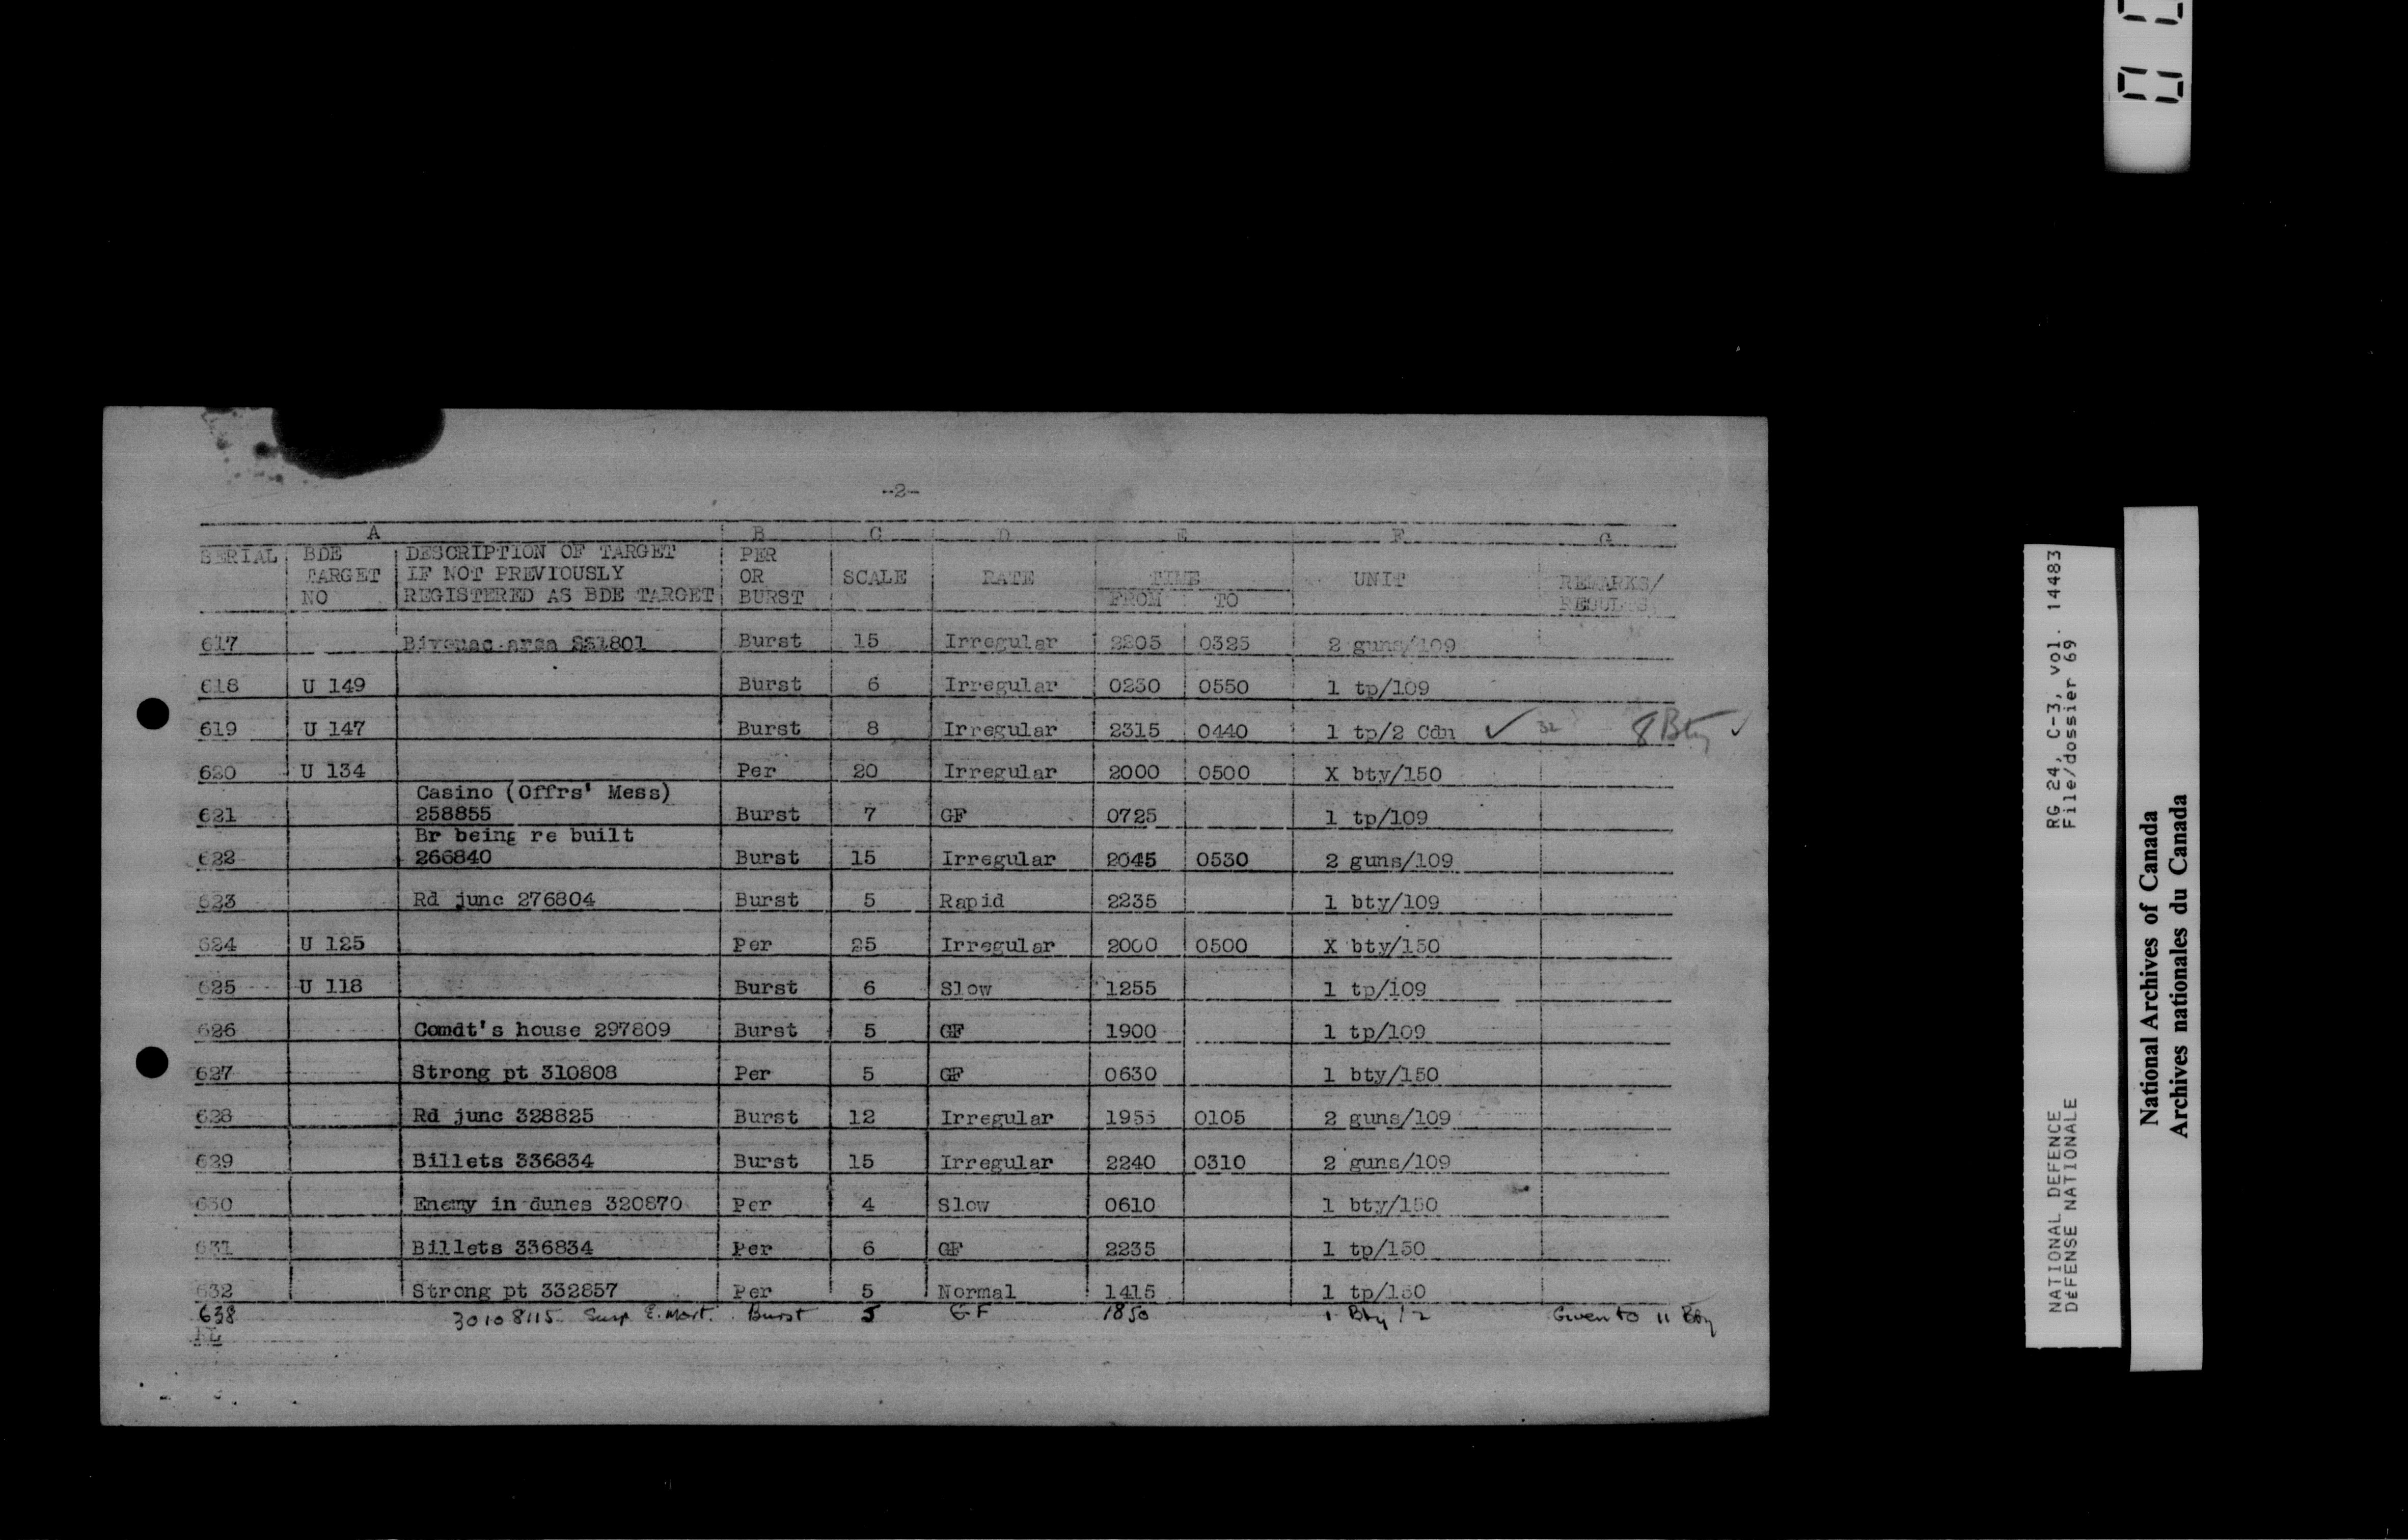 -2-
A B C D E F G
SERIAL BDE TARGET NO DESCRIPTION OF TARGET IF NOT PREVIOUSLY REGISTERED AS BDE TARGET PER OR BURST SCALE RATE TIME FROM TO UNIT REMARKS/ RESULTS
617 Bivouac area 1801 Burst 15 Irregular 2205 0325 2 guns/109
618 U 149 Burst 6 Irregular 0230 0550 1 tp/109
619 U 147 Burst 8 Irregular 2315 0440 1 tp/2 Cdn ✓ 32 8 Bty ✓
620 U 134 Per 20 Irregular 2000 0500 X bty/150
Casino (Offrs' Mess)
621 258855 Burst 7 GF 0725 1 tp/109
Br being re built
622 266840 Burst 15 Irregular 2045 0530 2 guns/109
623 Rd junc 276804 Burst 5 Rapid 2235 1 bty/109
624 U 125 Per 25 Irregular 2000 0500 X bty/150
625 U 118 Burst 6 Slow 1255 1 tp/109
626 Comdt's house 297809 Burst 5 GF 1900 1 tp/109
627 Strong pt 310808 Per 5 GF 0630 1 bty/150
628 Rd junc 328825 Burst 12 Irregular 1955 0105 2 guns/109
629 Billets 336834 Burst 15 Irregular 2240 0310 2 guns/109
630 Enemy in dunes 320870 Per 4 Slow 0610 1 bty/150
631 Billets 336834 Per 6 GF 2235 1 tp/150
632 Strong pt 332857 Per 5 Normal 1415 1 tp/150
638 30108115 Susp E. Mort. Burst 5 GF 1850 1 Bty/2 Given to 11 Bty
NATIONAL DEFENCE RG 24, C-3, vol. 14483
DÉFENSE NATIONALE File/dossier 69
National Archives of Canada
Archives nationales du Canada